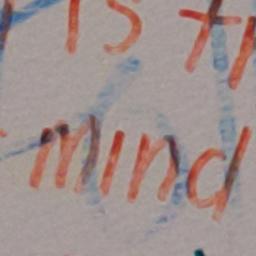 is th
mind